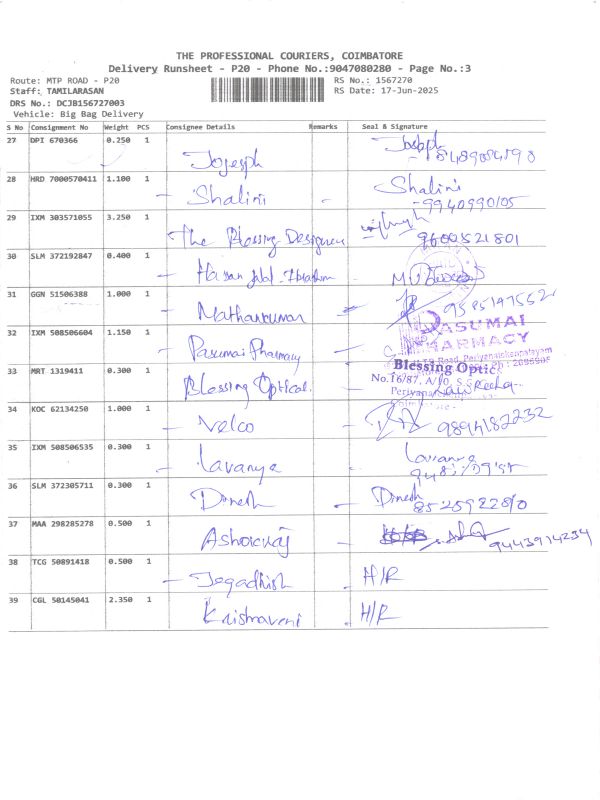 THE PROFESSIONAL COURIERS, COIMBATORE
Delivery Runsheet - P20 - Phone No.:9047080280 - Page No.:3
Route: MTP ROAD - P20 RS No.: 1567270
Staff: TAMILARASAN RS Date: 17-Jun-2025
DRS No.: DCJB156727003
Vehicle: Big Bag Delivery
S No Consignment No Weight PCS Consignee Details Remarks Seal & Signature
27 DPI 670366 0.250 1 Jogesph Joseph
28 HRD 7000570411 1.100 1 Shalini Shalini
9940990105
29 IXM 303571055 3.250 1 The Blessing Designer
9600521801
30 SLM 372192847 0.400 1 Hasan
31 GGN 51506388 1.000 1 Mathankumar
32 IXM 508506604 1.150 1 Pasumai Pharmacy
PASUMAI
PHARMACY
Road, Periyanaickenpalayam
33 MRT 1319411 0.300 1 Blessing Optical Blessing Optic
No.16/87, A/10, S.S.
34 KOC 62134250 1.000 1 Velco 9894182232
35 IXM 508506535 0.300 1 Lavanya Lavanya
36 SLM 372305711 0.300 1 Dinesh Dinesh
37 MAA 298285278 0.500 1 Ashokraj
9443914234
38 TCG 50891418 0.500 1 Jegadhish H/R
39 CGL 50145041 2.350 1 Krishnaveni H/R